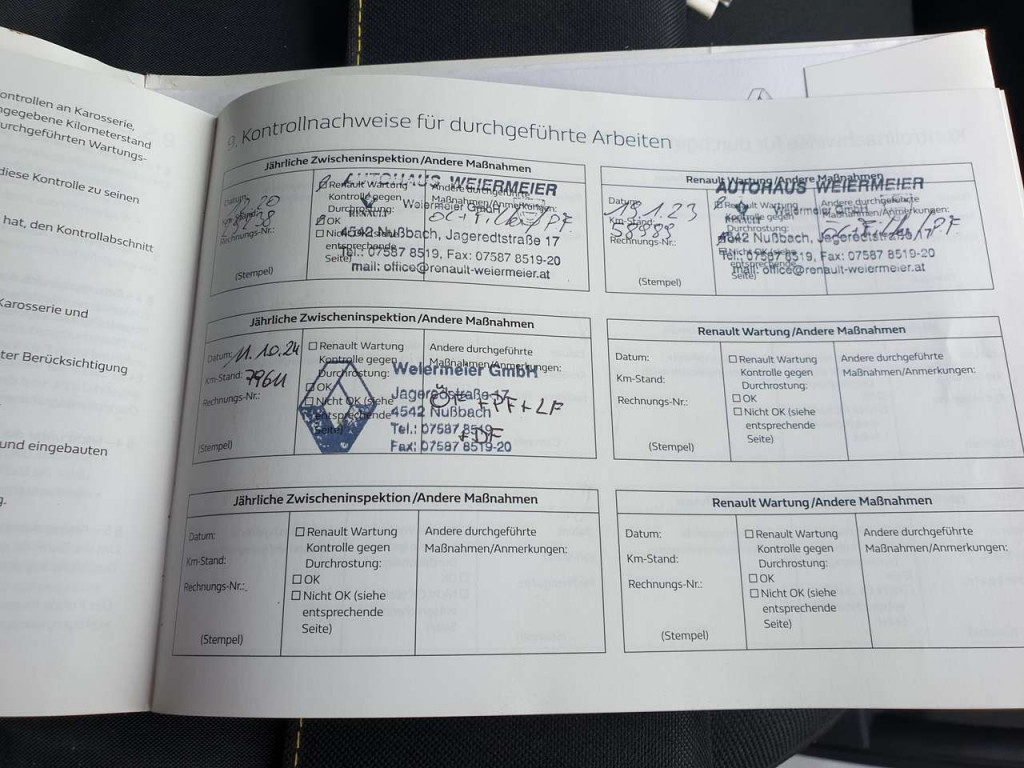 ontrollen an Karosserie,
ngegebene Kilometerstand
urchgeführten Wartungs-
diese Kontrolle zu seinen
hat, den Kontrollabschnitt
Karosserie und
ter Berücksichtigung
und eingebauten
g.
9. Kontrollnachweise für durchgeführte Arbeiten
Jährliche Zwischeninspektion/Andere Maßnahmen
AUTOHAUS WEIERMEIER
Weiermeier GmbH
RENAULT
4542 Nußbach, Jageredtstraße 17
Tel.: 07587 8519, Fax: 07587 8519-20
mail: office@renault-weiermeier.at
Datum:
Rechnungs-Nr.:
(Stempel)
Renault Wartung
Kontrolle gegen
Durchrostung:
OK
Nicht OK (siehe
entsprechende
Seite)
Andere durchgeführte
Maßnahmen/Anmerkungen:
Renault Wartung/Andere Maßnahmen
AUTOHAUS WEIERMEIER
Weiermeier GmbH
RENAULT
4542 Nußbach, Jageredtstraße 17
Tel.: 07587 8519, Fax: 07587 8519-20
mail: office@renault-weiermeier.at
Datum:
Km-Stand: 58989
Rechnungs-Nr.:
(Stempel)
Renault Wartung
Kontrolle gegen
Durchrostung:
OK
Nicht OK (siehe
entsprechende
Seite)
Andere durchgeführte
Maßnahmen/Anmerkungen:
Jährliche Zwischeninspektion/Andere Maßnahmen
Datum: 11.10.24
Km-Stand: 79611
Rechnungs-Nr.:
(Stempel)
Renault Wartung
Kontrolle gegen
Durchrostung:
OK
Nicht OK (siehe
entsprechende
Seite)
Andere durchgeführte
Maßnahmen/Anmerkungen:
Weiermeier GmbH
Jageredtstraße 17
4542 Nußbach
Tel.: 07587 8519
Fax: 07587 8519-20
ÖF + PF + LF
+ DF
Renault Wartung/Andere Maßnahmen
Datum:
Km-Stand:
Rechnungs-Nr.:
(Stempel)
Renault Wartung
Kontrolle gegen
Durchrostung:
OK
Nicht OK (siehe
entsprechende
Seite)
Andere durchgeführte
Maßnahmen/Anmerkungen:
Jährliche Zwischeninspektion/Andere Maßnahmen
Datum:
Km-Stand:
Rechnungs-Nr.:
(Stempel)
Renault Wartung
Kontrolle gegen
Durchrostung:
OK
Nicht OK (siehe
entsprechende
Seite)
Andere durchgeführte
Maßnahmen/Anmerkungen:
Renault Wartung/Andere Maßnahmen
Datum:
Km-Stand:
Rechnungs-Nr.:
(Stempel)
Renault Wartung
Kontrolle gegen
Durchrostung:
OK
Nicht OK (siehe
entsprechende
Seite)
Andere durchgeführte
Maßnahmen/Anmerkungen: